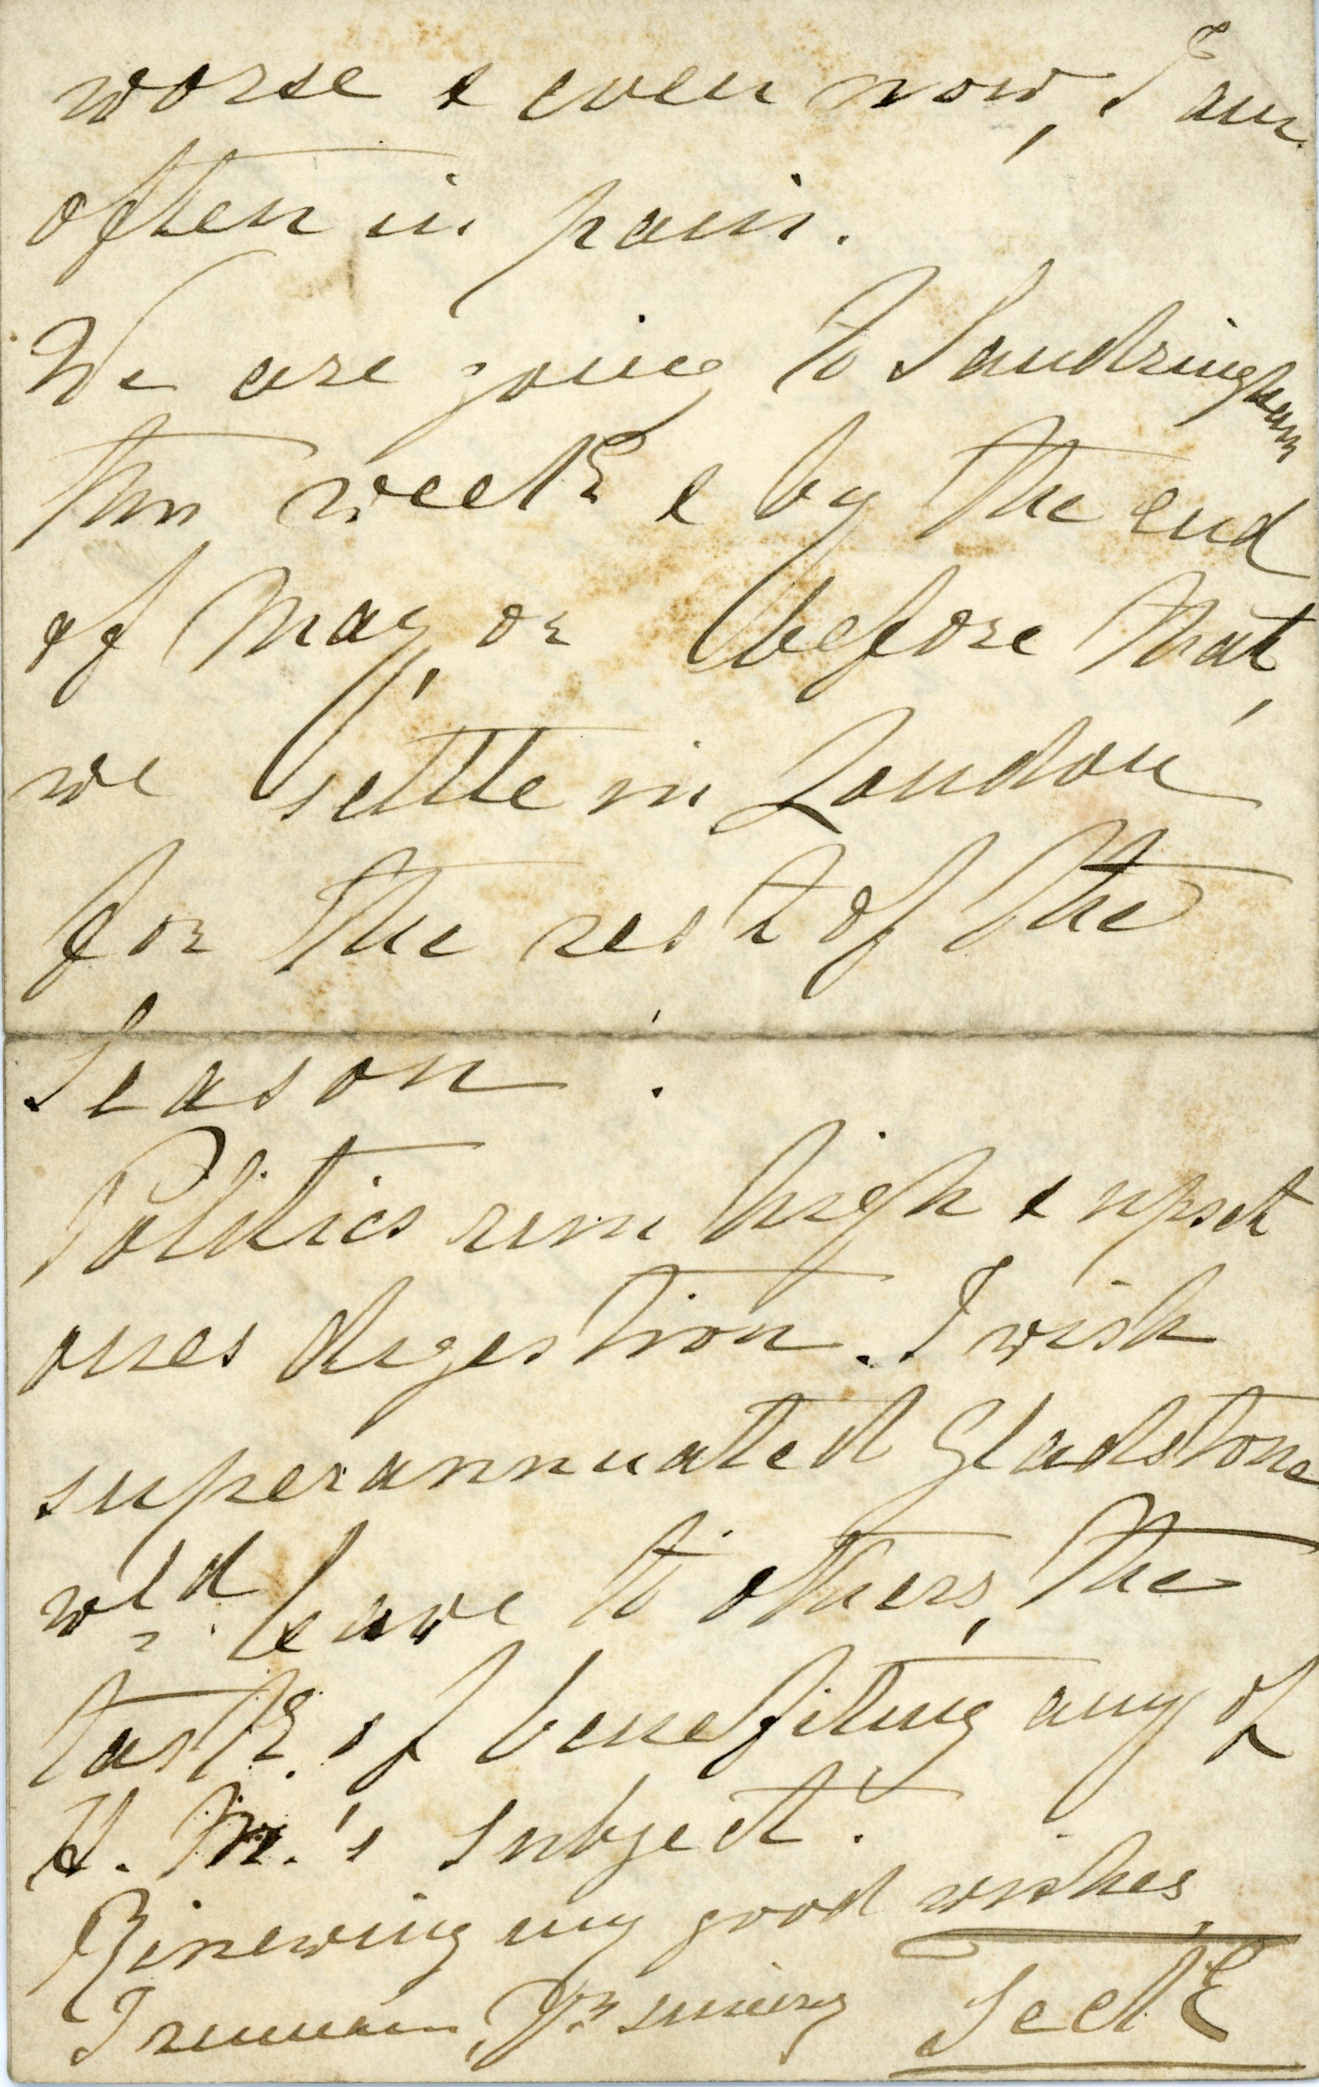 worse & even now, I am
often in pain.
We are going to Sandringham
this week & by the end
of May, or before that,
we settle in London
for the rest of the
Season.
Politics run high & upset
ones digestion. I wish
superannuated Gladstone
wld. leave to others, the
task of benefiting any of
H. M.'s subject.
Renewing my good wishes,
I remain, Yrs sincerely
Teck